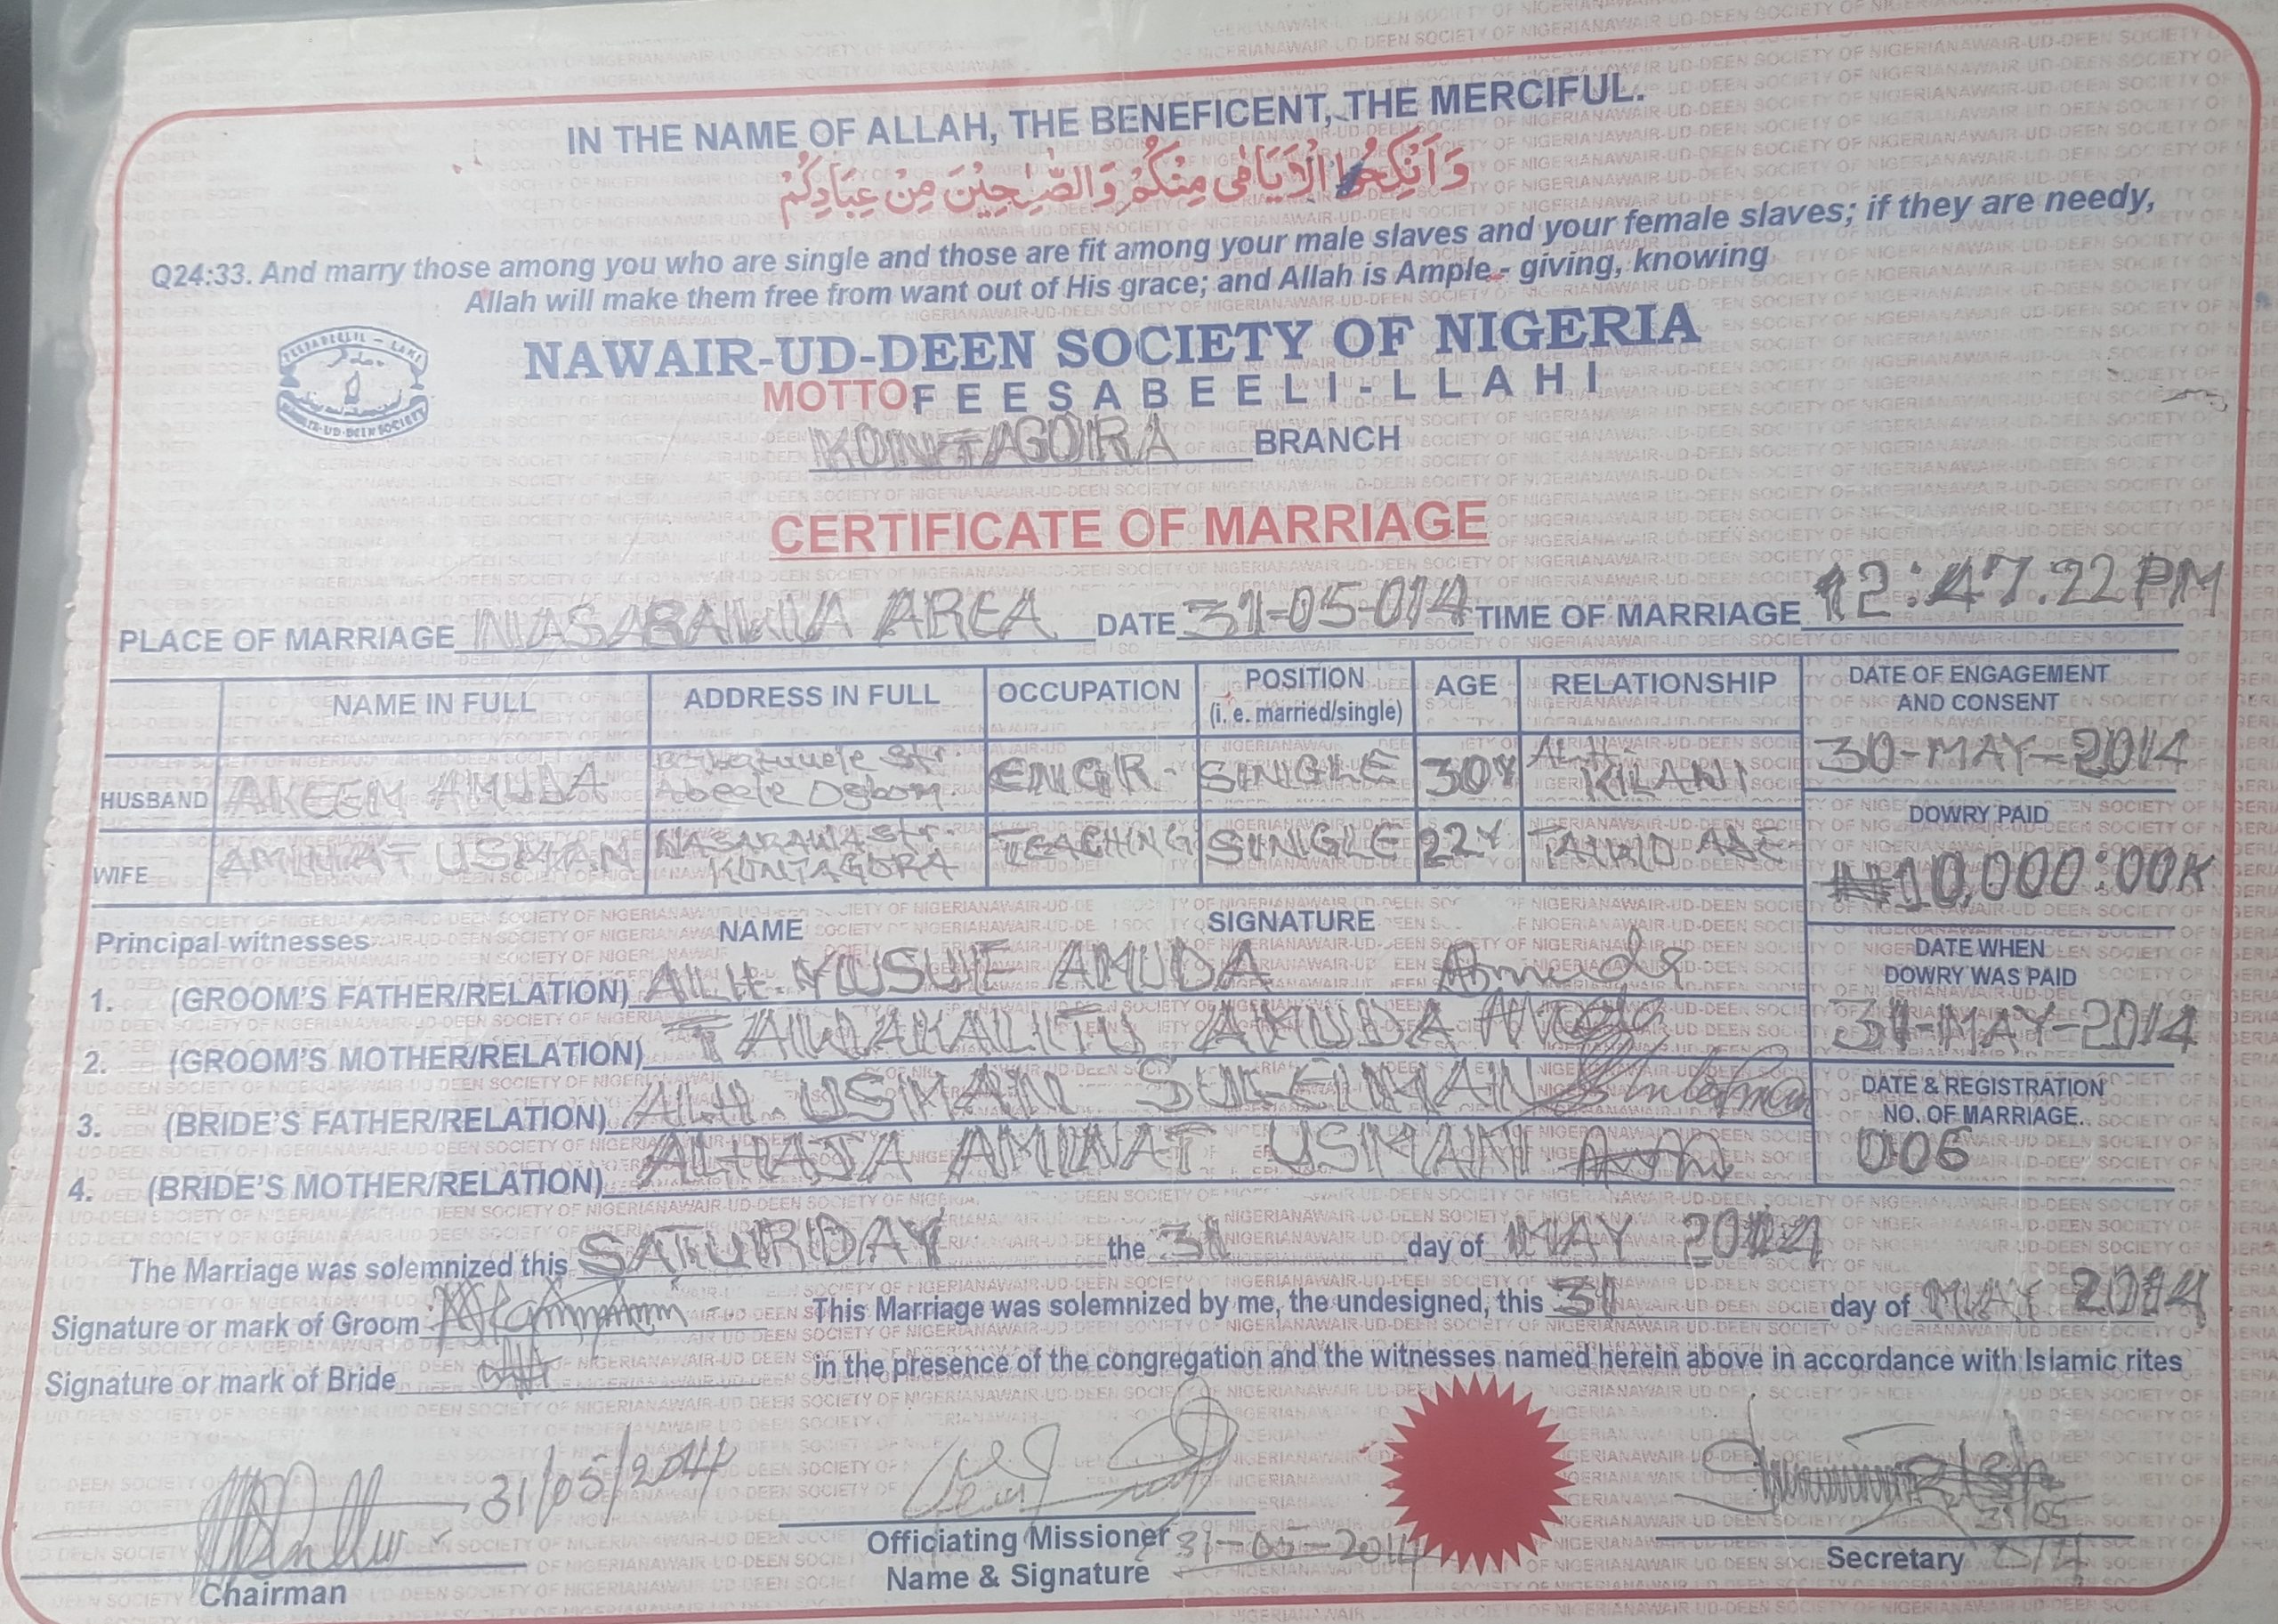 IN THE NAME OF ALLAH, THE BENEFICENT, THE MERCIFUL.
وَاَنْكِحُوا الْاَيَامٰى مِنْكُمْ وَالصّٰلِحِيْنَ مِنْ عِبَادِكُمْ
Q24:33. And marry those among you who are single and those are fit among your male slaves and your female slaves; if they are needy,
Allah will make them free from want out of His grace; and Allah is Ample - giving, knowing
NAWAIR-UD-DEEN SOCIETY OF NIGERIA
MOTTO FEESABEELI-LLAHI
KONTAGORA BRANCH
CERTIFICATE OF MARRIAGE
PLACE OF MARRIAGE NASARAWA AREA DATE 31-05-014 TIME OF MARRIAGE 12:47.22 PM
NAME IN FULL ADDRESS IN FULL OCCUPATION POSITION (i. e. married/single) AGE RELATIONSHIP
HUSBAND AKEEM AMUDA Str. Abeele Osbom ENGR. SINGLE 30Y ALH. KILANI
WIFE AMINAT USMAN NASARAWA Str. KONTAGORA TEACHING SINGLE 22Y
DATE OF ENGAGEMENT
AND CONSENT
30-MAY-2014
DOWRY PAID
₦10,000:00K
DATE WHEN
DOWRY WAS PAID
31-MAY-2014
DATE & REGISTRATION
NO. OF MARRIAGE.
006
Principal witnesses NAME SIGNATURE
1. (GROOM'S FATHER/RELATION) ALH. YUSUF AMUDA Amuda
2. (GROOM'S MOTHER/RELATION) TAWAKALITU AMUDA
3. (BRIDE'S FATHER/RELATION) ALH. USMAN SULEIMAN
4. (BRIDE'S MOTHER/RELATION) ALHAJA AMINAT USMAN
The Marriage was solemnized this SATURDAY the 31 day of MAY 2014
Signature or mark of Groom
This Marriage was solemnized by me, the undesigned, this 31 day of MAY 2014
Signature or mark of Bride
in the presence of the congregation and the witnesses named herein above in accordance with Islamic rites
31/05/2014
Chairman
Officiating Missioner 31-05-2014
Name & Signature
31/05
Secretary